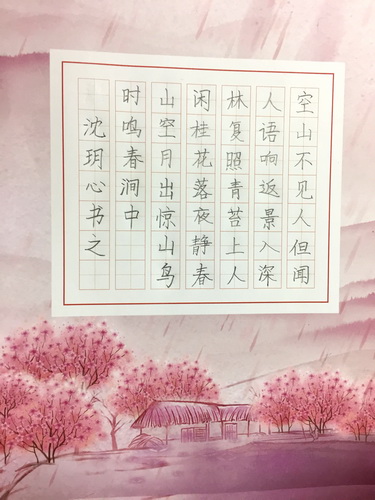 空山不见人但闻
人语响返景入深
林复照青苔上人
闲桂花落夜静春
山空月出惊山鸟
时鸣春涧中
沈玥心书之